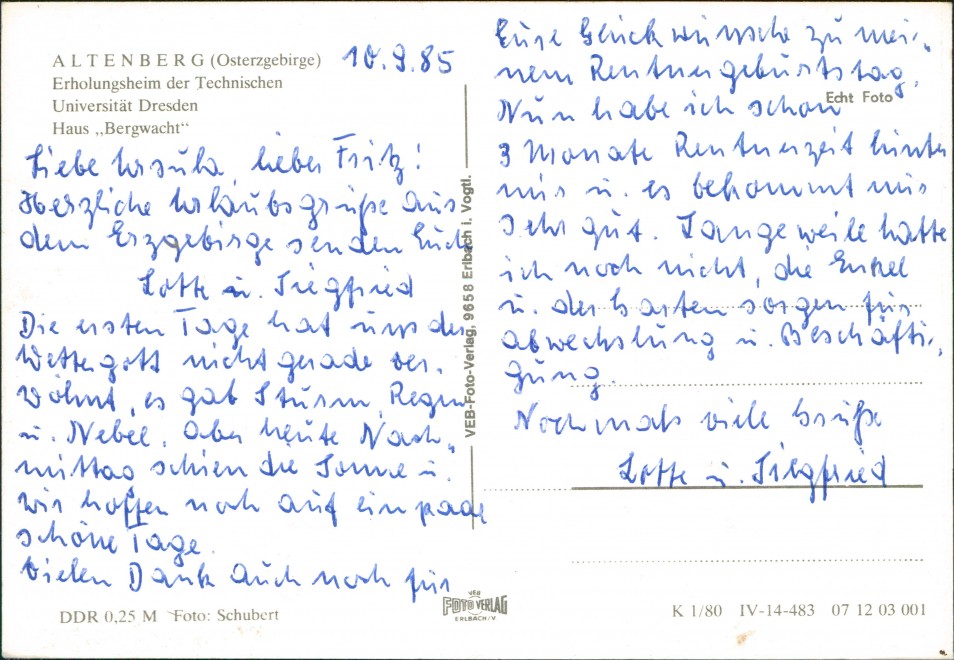 ALTENBERG (Osterzgebirge)
Erholungsheim der Technischen
Universität Dresden
Haus „Bergwacht“
10.9.85
Liebe Ursula, lieber Fritz!
Herzliche Urlaubsgrüße aus
dem Erzgebirge senden Euch
Lotte u. Siegfried
Die ersten Tage hat uns der
Wettergott nicht gerade ver-
wöhnt, es gab Sturm, Regen
u. Nebel. Aber heute Nach-
mittag schien die Sonne u.
wir hoffen noch auf ein paar
schöne Tage.
Vielen Dank auch noch für
DDR 0,25 M Foto: Schubert
VEB-Foto-Verlag, 9658 Erlbach i. Vogtl.
VEB
FOTO VERLAG
ERLBACH/V
Eure Glückwünsche zu mei-
nem Rentnergeburtstag.
Echt Foto
Nun habe ich schon
3 Monate Rentnerzeit hinter
mir u. es bekommt mir
sehr gut. Langeweile hatte
ich noch nicht, die Enkel
u. der Garten sorgen für
Abwechslung u. Beschäfti-
gung.
Nochmals viele Grüße
Lotte u. Siegfried
K 1/80 IV-14-483 07 12 03 001